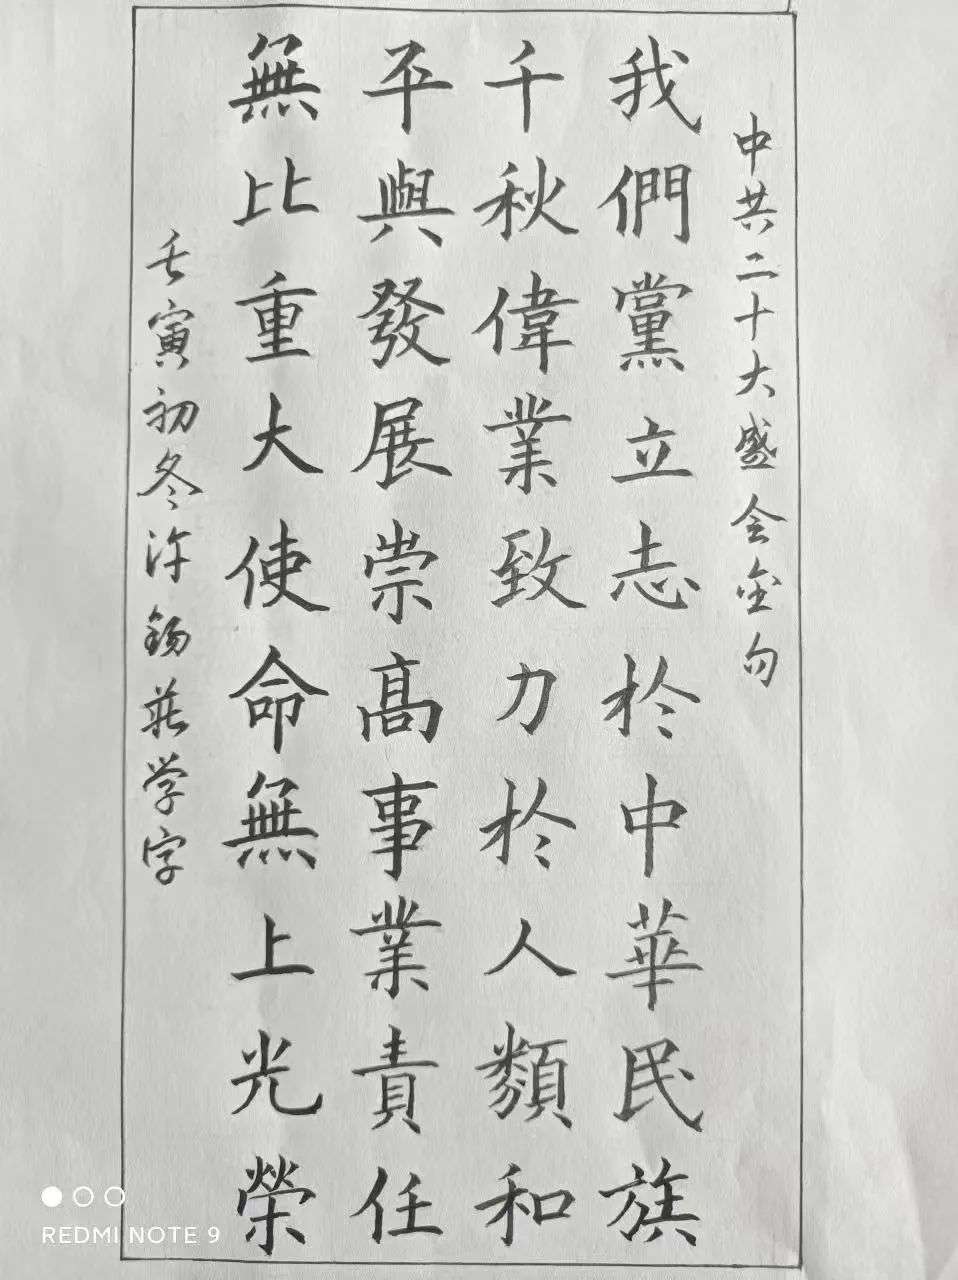 中共二十大盛会金句
我們黨立志於中華民族
千秋偉業致力於人類和
平與發展崇高事業責任
無比重大使命無上光榮
壬寅初冬許錫莊学字
REDMI NOTE 9